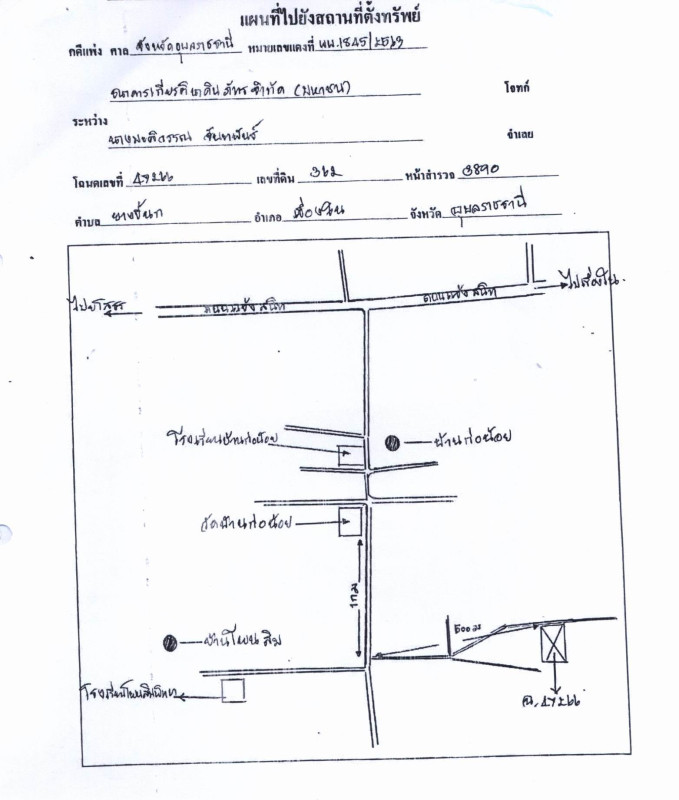 แผนที่ไปยังสถานที่ตั้งทรัพย์
คดีแพ่ง ศาล จังหวัดอุบลราชธานี หมายเลขแดงที่ ผบ.1845/2563
ธนาคารเกียรตินาคินภัทร จำกัด (มหาชน) โจทก์
ระหว่าง
จำเลย
โฉนดเลขที่ 47266 เลขที่ดิน 362 หน้าสำรวจ 3890
ตำบล ยางขี้นก อำเภอ เขื่องใน จังหวัด อุบลราชธานี
ไปยโสธร ถนนแจ้งสนิท ถนนแจ้งสนิท ไปเขื่องใน
โรงเรียนบ้านก่อน้อย บ้านก่อน้อย
วัดบ้านก่อน้อย
1 กม
500 ม
บ้านโพนสิม
ฉ.47266